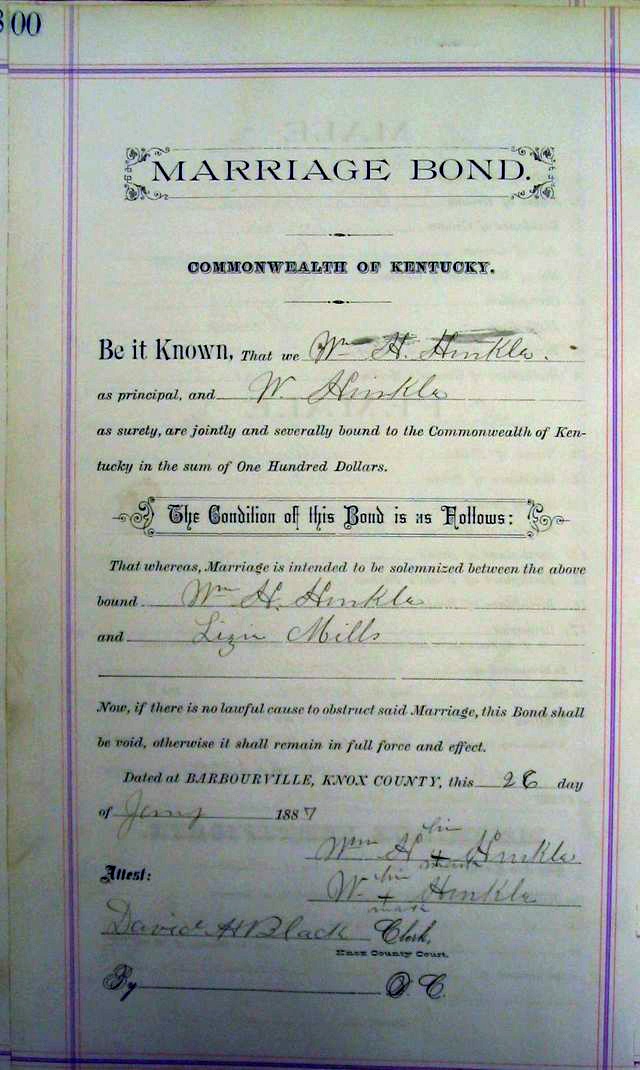 00
MARRIAGE BOND.
COMMONWEALTH OF KENTUCKY.
Be it Known, That we Wm H. Hinkle.
as principal, and W. Hinkle
as surety, are jointly and severally bound to the Commonwealth of Ken-
tucky in the sum of One Hundred Dollars.
The Condition of this Bond is as Follows:
That whereas, Marriage is intended to be solemnized between the above
bound Wm H. Hinkle
and Lizie Mills
Now, if there is no lawful cause to obstruct said Marriage, this Bond shall
be void, otherwise it shall remain in full force and effect.
Dated at BARBOURVILLE, KNOX COUNTY, this 26 day
of 1887
his
Wm H + Hinkle
mark
Attest:
his
W + Hinkle
mark
David H Black Clerk,
Knox County Court.
By D. C.